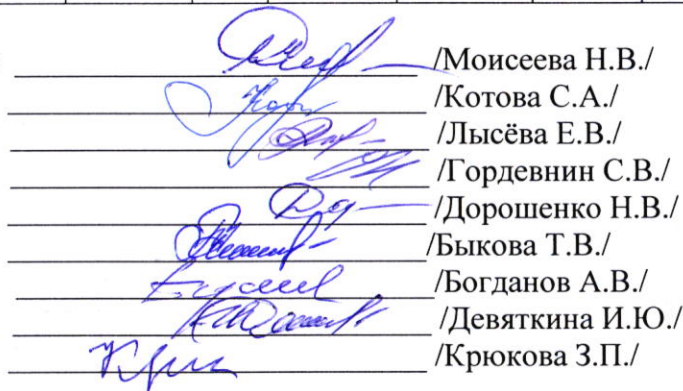 /Моисеева Н.В./
/Котова С.А./
/Лысёва Е.В./
/Гордевнин С.В./
/Дорошенко Н.В./
/Быкова Т.В./
/Богданов А.В./
/Девяткина И.Ю./
/Крюкова З.П./